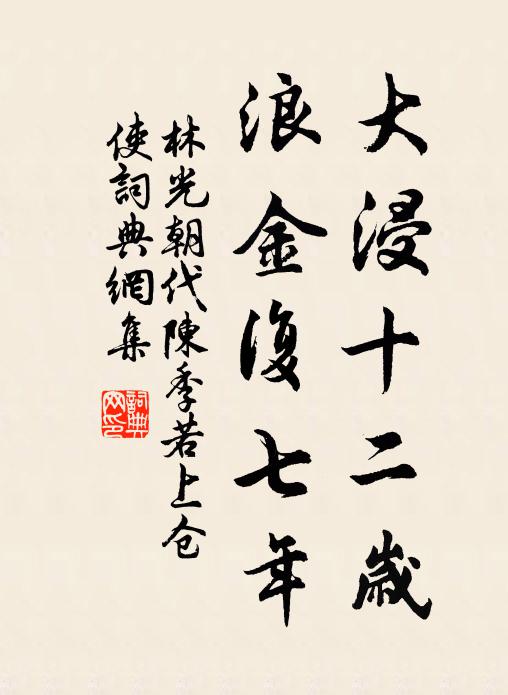 大浸十二歲
浪金復七年
林光朝代陳季若上仓
使詞典網集
詞典
网印